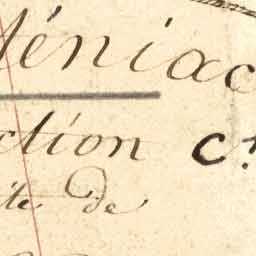 éniac
ction C.
ite de